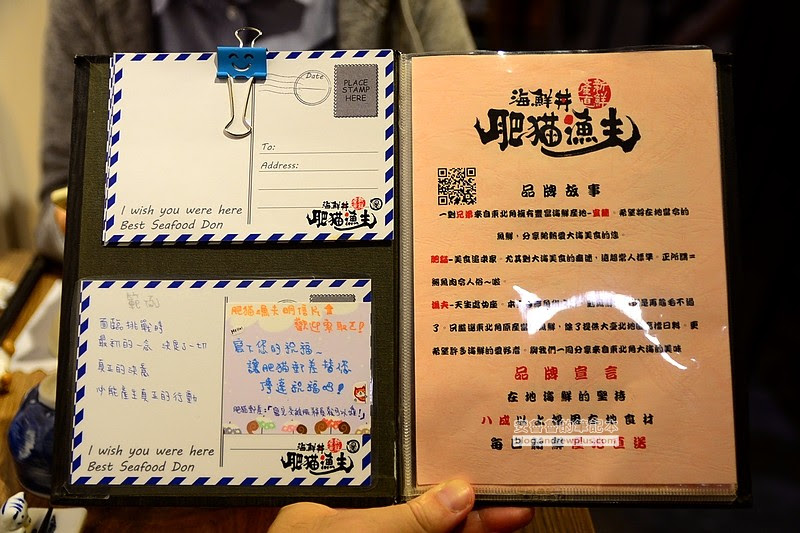 Date
PLACE
STAMP
HERE
To:
Address:
I wish you were here
Best Seafood Don
海鮮丼
新鮮
產直
肥猫漁夫
範例
面臨挑戰時
最初的一念 決定了一切
真正的決意
才能產生真正的行動
肥猫漁夫明信片
歡迎索取!
寫下您的祝福~
讓肥猫郵差替你
傳達祝福喲!
I wish you were here
Best Seafood Don
海鮮丼
肥猫漁夫
海鮮丼
新鮮
產直
肥猫漁夫
品牌故事
一對兄弟來自東北角擁有豐富海鮮產地-宜蘭。希望將在地當令的
魚鮮,分享給熱愛大海美食的您。
肥貓-美食追求家。尤其對大海美食的癡迷,遠超常人標準。正所謂=
鮪魚肉令人俗~啦
漁夫-天生處女座。
是再龜毛不過
了,只嚴選東北角原產當
除了提供大臺北地區
日料,更
希望許多海鮮的愛好者,與我們一同分享來自東北角大海的美味
品牌宣言
在地海鮮的堅持
八成以上採用在地食材
每日肥鮮產地直送
安德魯的筆記本
blog.andrewplus.com